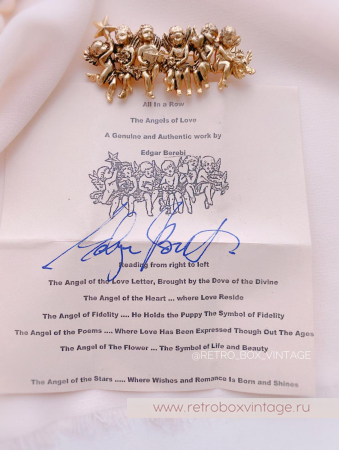 All In a Row
The Angels of Love
A Genuine and Authentic work by
Edgar Berebi
Reading from right to left
The Angel of the Love Letter, Brought by the Dove of the Divine
The Angel of the Heart ... where Love Reside
The Angel of Fidelity .... He Holds the Puppy The Symbol of Fidelity
The Angel of the Poems .... Where Love Has Been Expressed Though Out The Ages
The Angel of The Flower ... The Symbol of Life and Beauty
@RETRO_BOX_VINTAGE
The Angel of the Stars ..... Where Wishes and Romance Is Born and Shines
www.retroboxvintage.ru